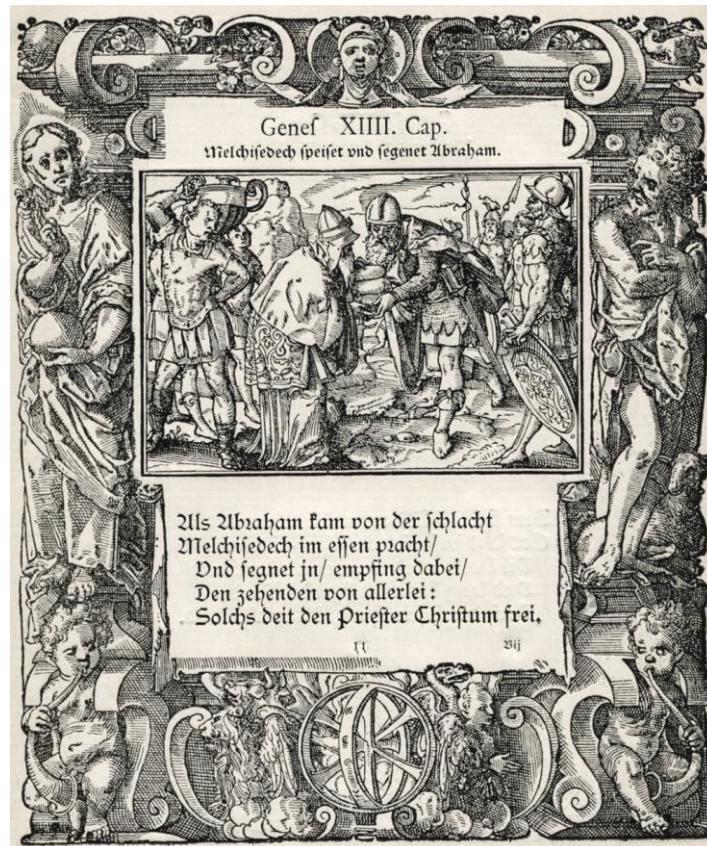 Genes XIIII. Cap.
Melchisedech speiset vnd segenet Abraham.
Als Abraham kam von der schlacht
Melchisedech im essen pracht/
Vnd segnet jn/ empfing dabei/
Den zehenden von allerlei:
Solchs deit den Priester Christum frei.
Bij